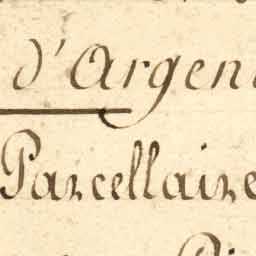 d'Argen
Parcellaire